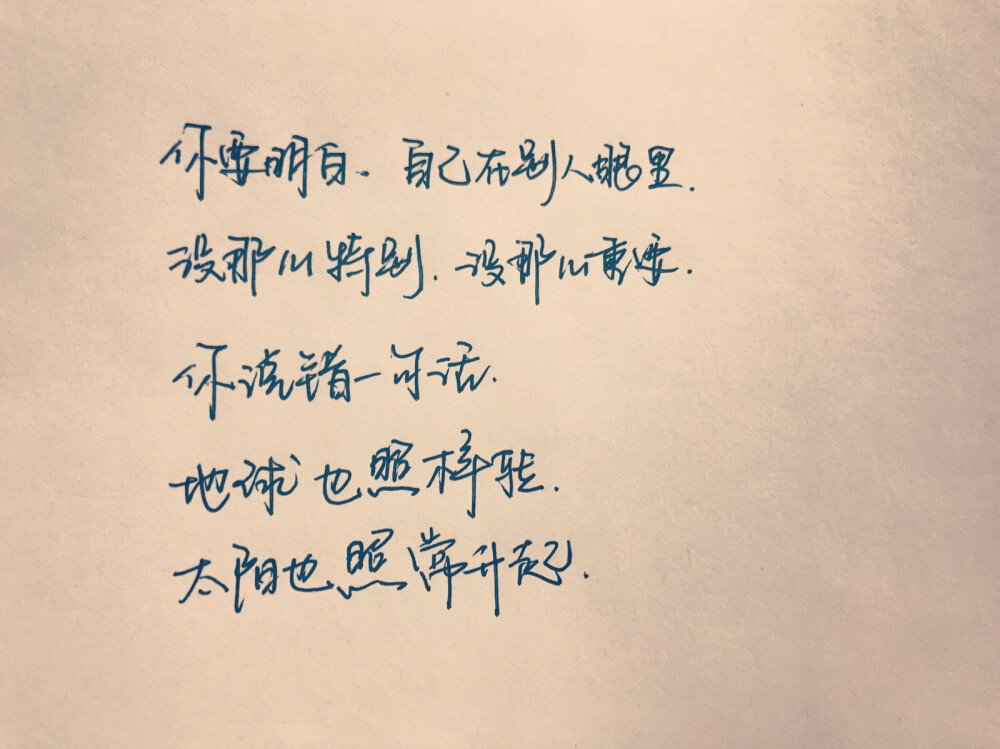 你要明白、自己在别人眼里.
没那么特别.没那么重要.
你说错一句话.
地球也照样转.
太阳也照常升起.